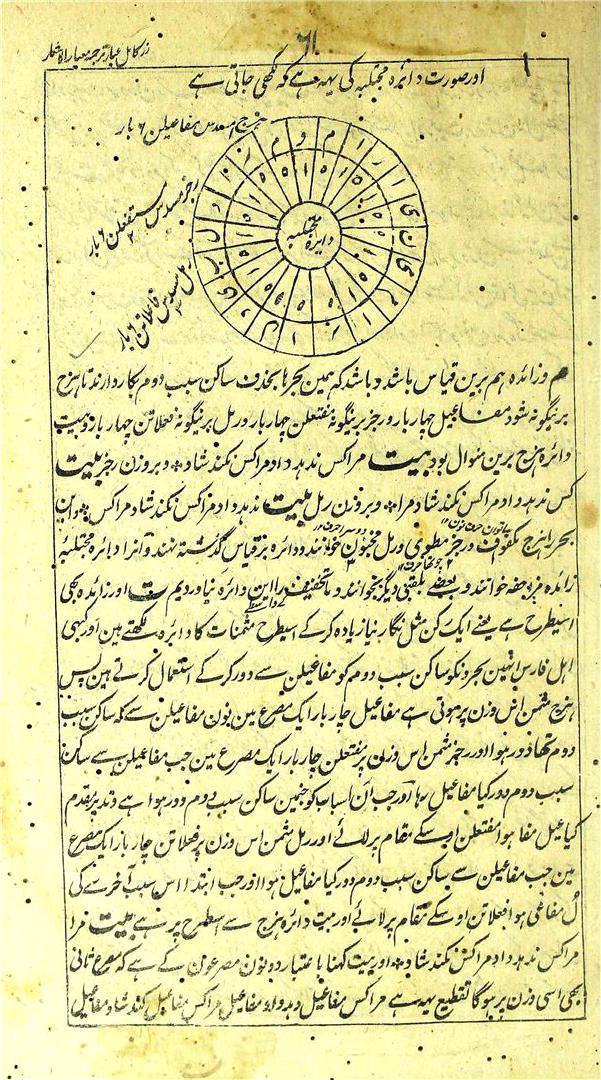 ۶۱
زر کامل عیار ترجمہ معیار الاشعار
اور صورت دائرہ مجتلبہ کی یہہ ہے کہ لکھی جاتی ہے
ہزج مسدس مفاعیلن ۶ بار
رجز مسدس مستفعلن ۶ بار
رمل مسدس فاعلاتن ۶ بار
دایرہ مجتلبہ
م وزائدہ ہم برین قیاس باشد و باشد کہ ہمین بحرہا بحذف ساکن سبب دوم بکار دارند تا ہزج
برینگونہ شود مفاعیل چہار بار و رجز برینگونہ مفتعلن چہار بار و رمل برینگونہ فعلاتن چہار بار و بیت
دائرہ ہزج برین منوال بود بیت مراکس ندہد داد مراکس نکند شاد و بر وزن رجز بیت
کس ندہد داد مراکس نکند شاد مرا و بر وزن رمل بیت ندہد داد مراکس نکند شاد مراکس و این
بحر را ہزج مکفوف و رجز مطوی و رمل مخبون خوانند و دائرہ بر قیاس گذشتہ نہند و آنرا دائرہ مجتلبہ
زائدہ مزاحفہ خوانند و بعضے بلقبی دیگر بخوانند و ما تخفیف را این دائرہ نیاوردیم ت اور زائدہ بھی
اسیطرح ہے یعنے ایک رکن مثل نگار نیا زیادہ کر کے اسیطرح مثمنات کا دائرہ لکھتے ہین اور کبھی
اہل فارس انہین بحرونکو ساکن سبب دوم کو مفاعیلن سے دور کر کے استعمال کرتے ہین پس
ہزج مثمن اس وزن پر ہوتی ہے مفاعیل چار بار ایک مصرع مین نون مفاعیلن سے کہ ساکن سبب
دوم تھا دور ہوا اور رجز مثمن اس وزن پر مفتعلن چار بار ایک مصرع مین جب مفاعیلن سے ساکن
سبب دوم دور کیا مفاعیل رہا اور جب ان اسباب کو جنہین ساکن سبب دوم دور ہوا ہے وتد پر مقدم
کیا عیل مفا ہوا مفتعلن اوسکے مقام پر لائے اور رمل مثمن اس وزن پر فعلاتن چار بار ایک مصرع
مین جب مفاعیلن سے ساکن سبب دوم دور کیا مفاعیل ہوا اور جب ابتدا اس سبب آخر سے کی
ل مفاعی ہوا فعلاتن اوسکے مقام پر لائے اور بیت دائرہ ہزج سے اسطرح پر ہے بیت مرا
مراکس ندہد داد مراکس نکند شاد اور بیت کہنا باعتبار دونون مصرعون کے ہے کہ مصرع ثانی
بھی اسی وزن پر ہوگا تقطیع یہہ ہے مراکس مفاعیل دہد داد مفاعیل مراکس مفاعیل کند شاد مفاعیل